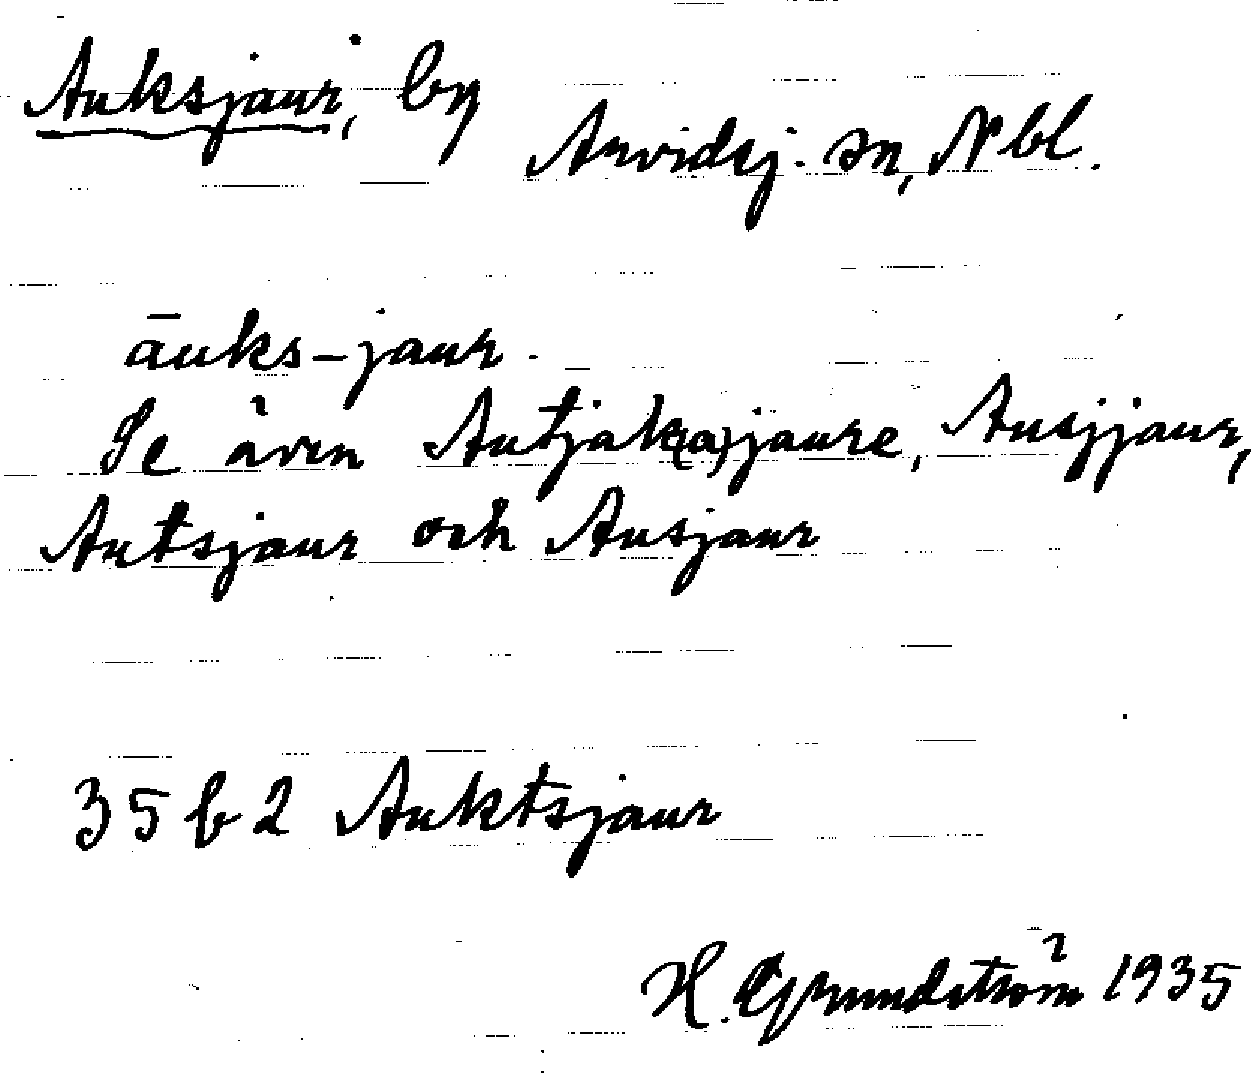 Auksjaur, by
Arvidsj. sn, Nbl.
āuks-jaur.
Se även Autjak(a)jaure, Ausjjaur,
Autsjaur och Ausjaur
35 b 2 Auktsjaur
H. Grundström 1935